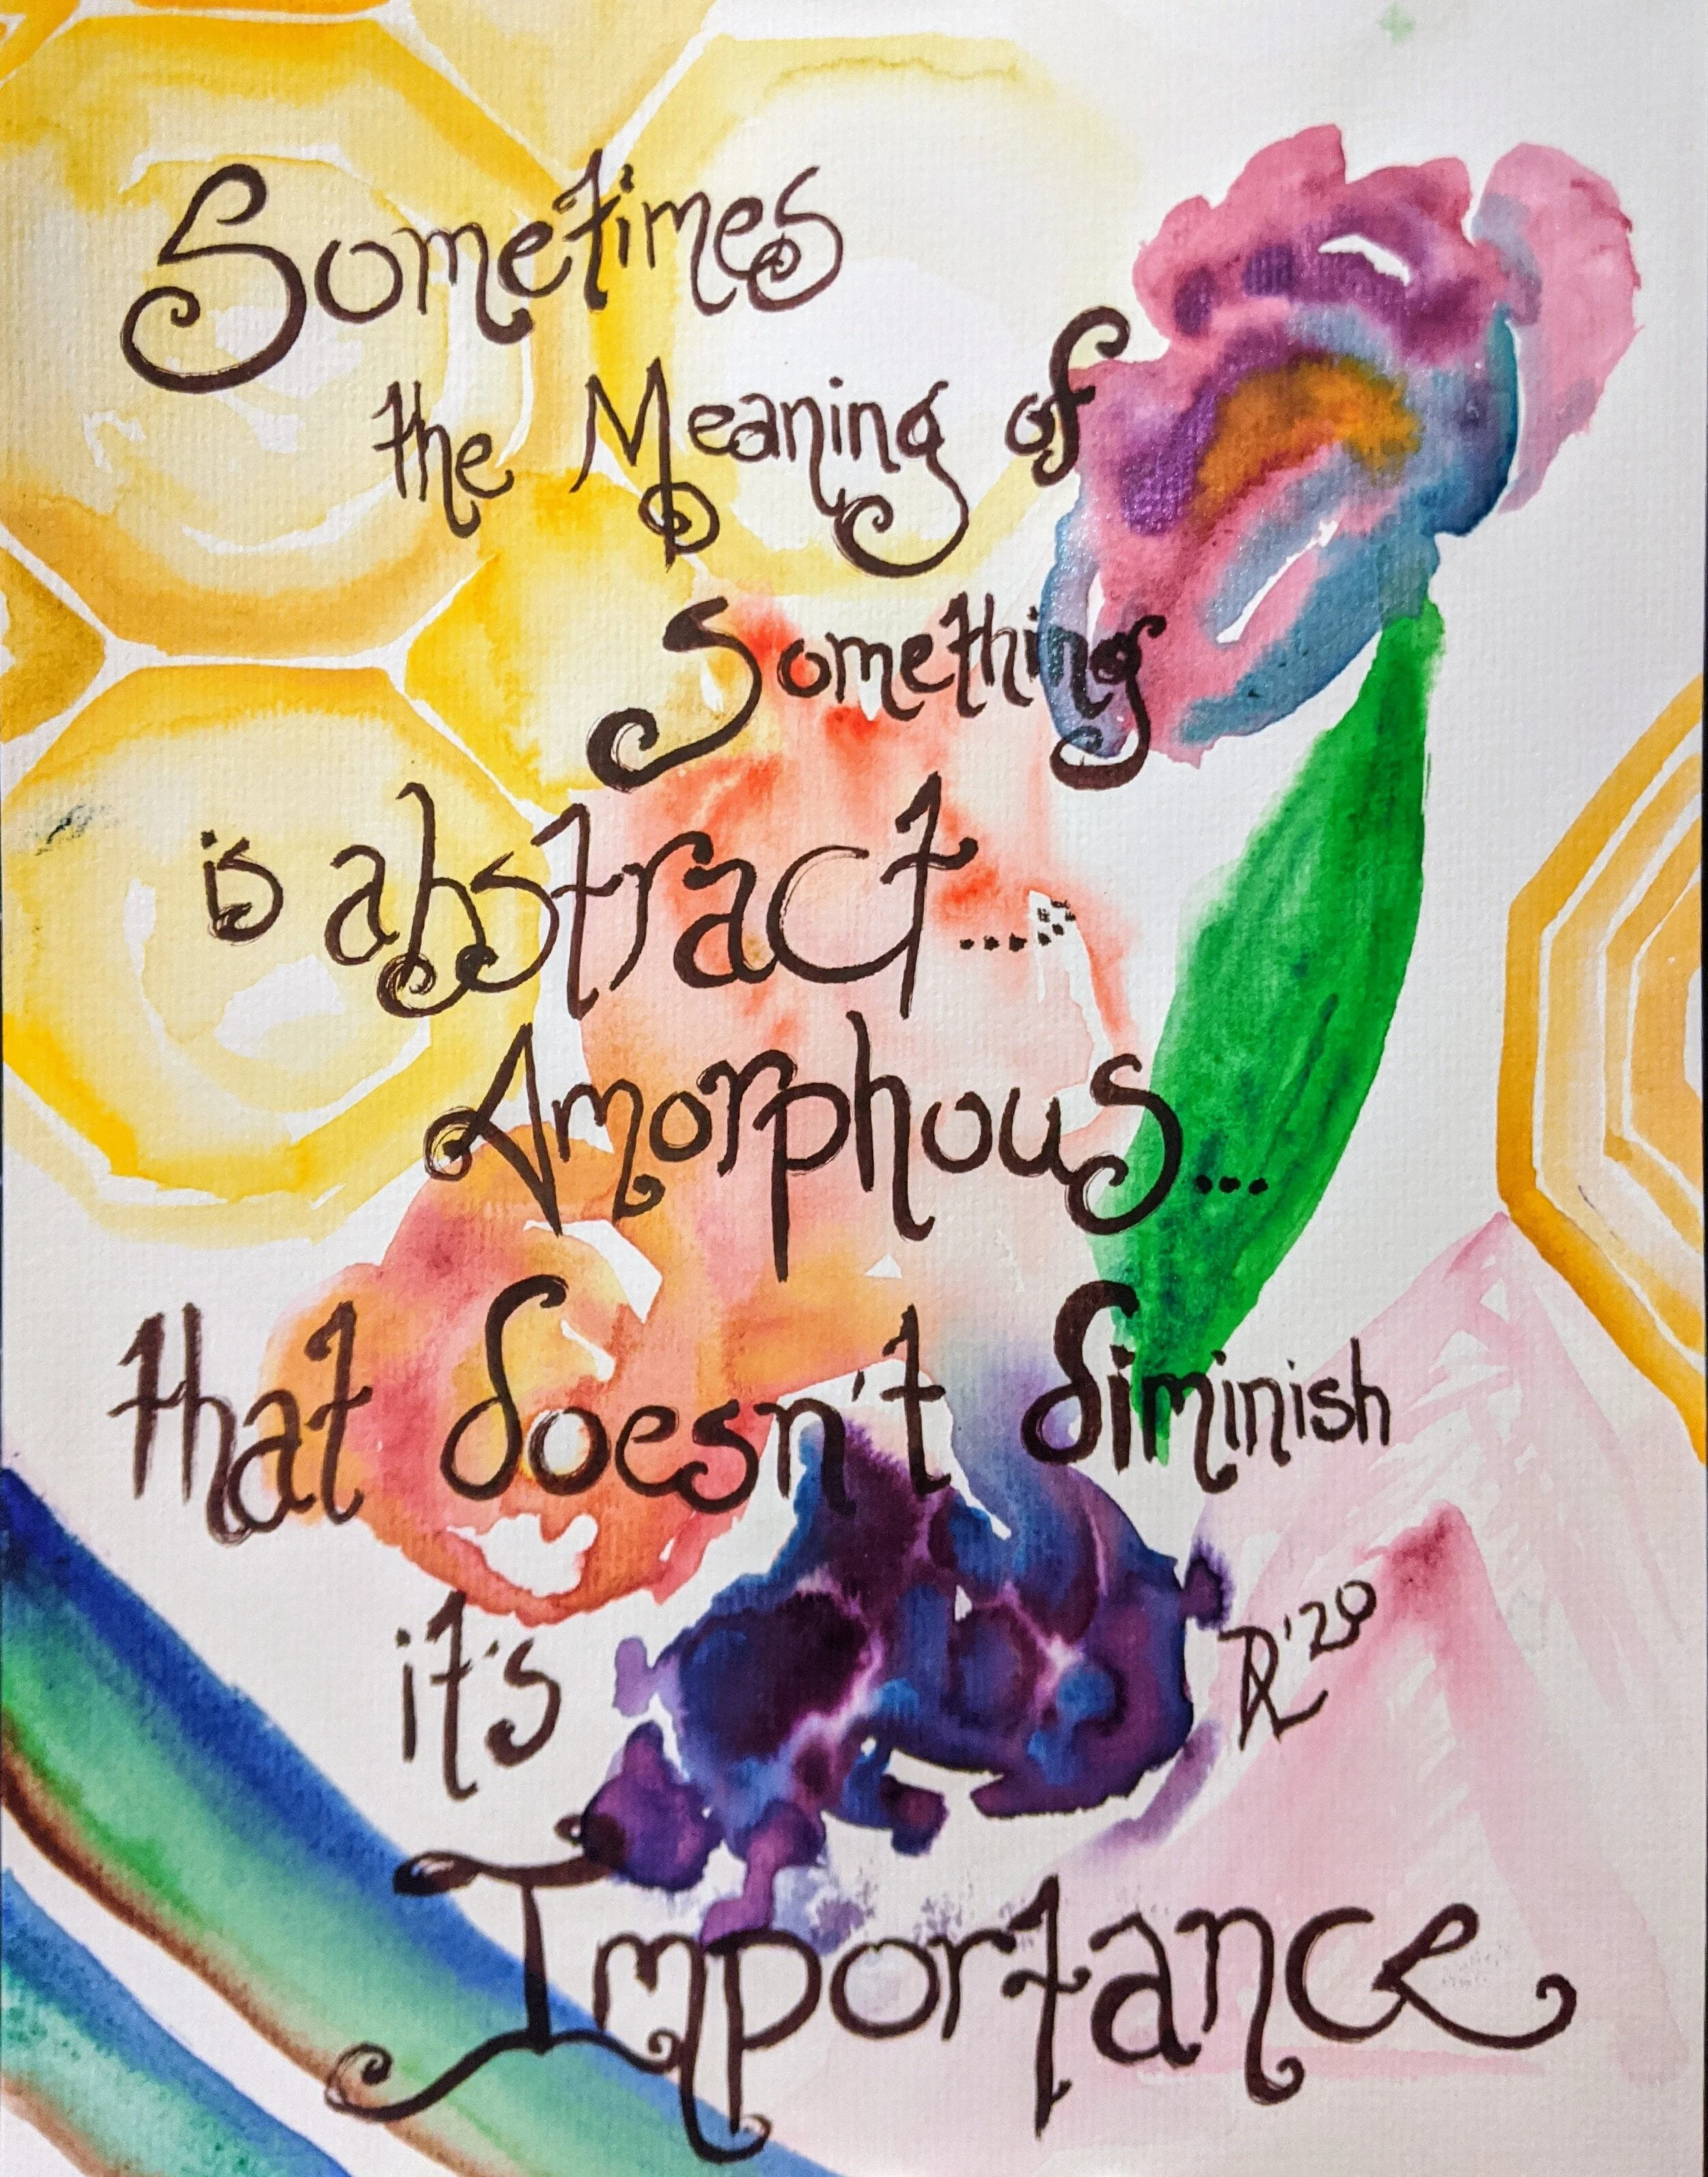 Sometimes
the Meaning of
Something
is abstract.......
Amorphous...
that doesn't diminish
it's
Importance